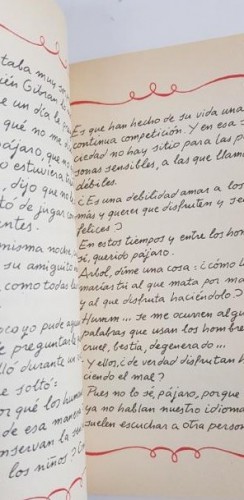 taba muy
ién Gibran
e un día le
qué no me
pájaro, que
estuviera
, dijo que no
tó de jugar con
entes.
misma noche,
su amiguito
, como todas
oco yo pude
e preguntar
lló durante un
e soltó:
or qué los human
de esa manera
onservan la se
los niños?
Es que han hecho de su vida una
continua competición. Y en esa so
ciedad no hay sitio para las per
sonas sensibles, a las que llama
débiles.
¿Es una debilidad amar a los
más y querer que disfruten y se
felices?
En estos tiempos y entre los hom
sí, querido pájaro.
Árbol, dime una cosa: ¿cómo ll
marías tú al que mata por ma
y al que disfruta haciéndolo?
Humm... se me ocurren algun
palabras que usan los hombre
cruel, bestia, degenerado...
Y ellos, ¿de verdad disfrutan h
ciendo el mal?
Pues no lo sé, pájaro, porque
ya no hablan nuestro idioma
suelen escuchar a otra person